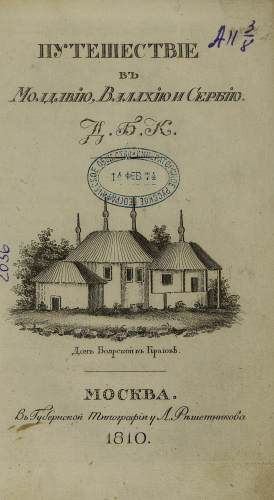 АII 3/8
ПУТЕШЕСТВІЕ
ВЪ
МОЛДАВІЮ, ВАЛАХІЮ И СЕРБІЮ.
Д. Б. К.
14 ФЕВ 74
2036
Домъ Боярской въ Краіовѣ.
МОСКВА.
Въ Губернской Типографіи у А. Решетникова
1810.